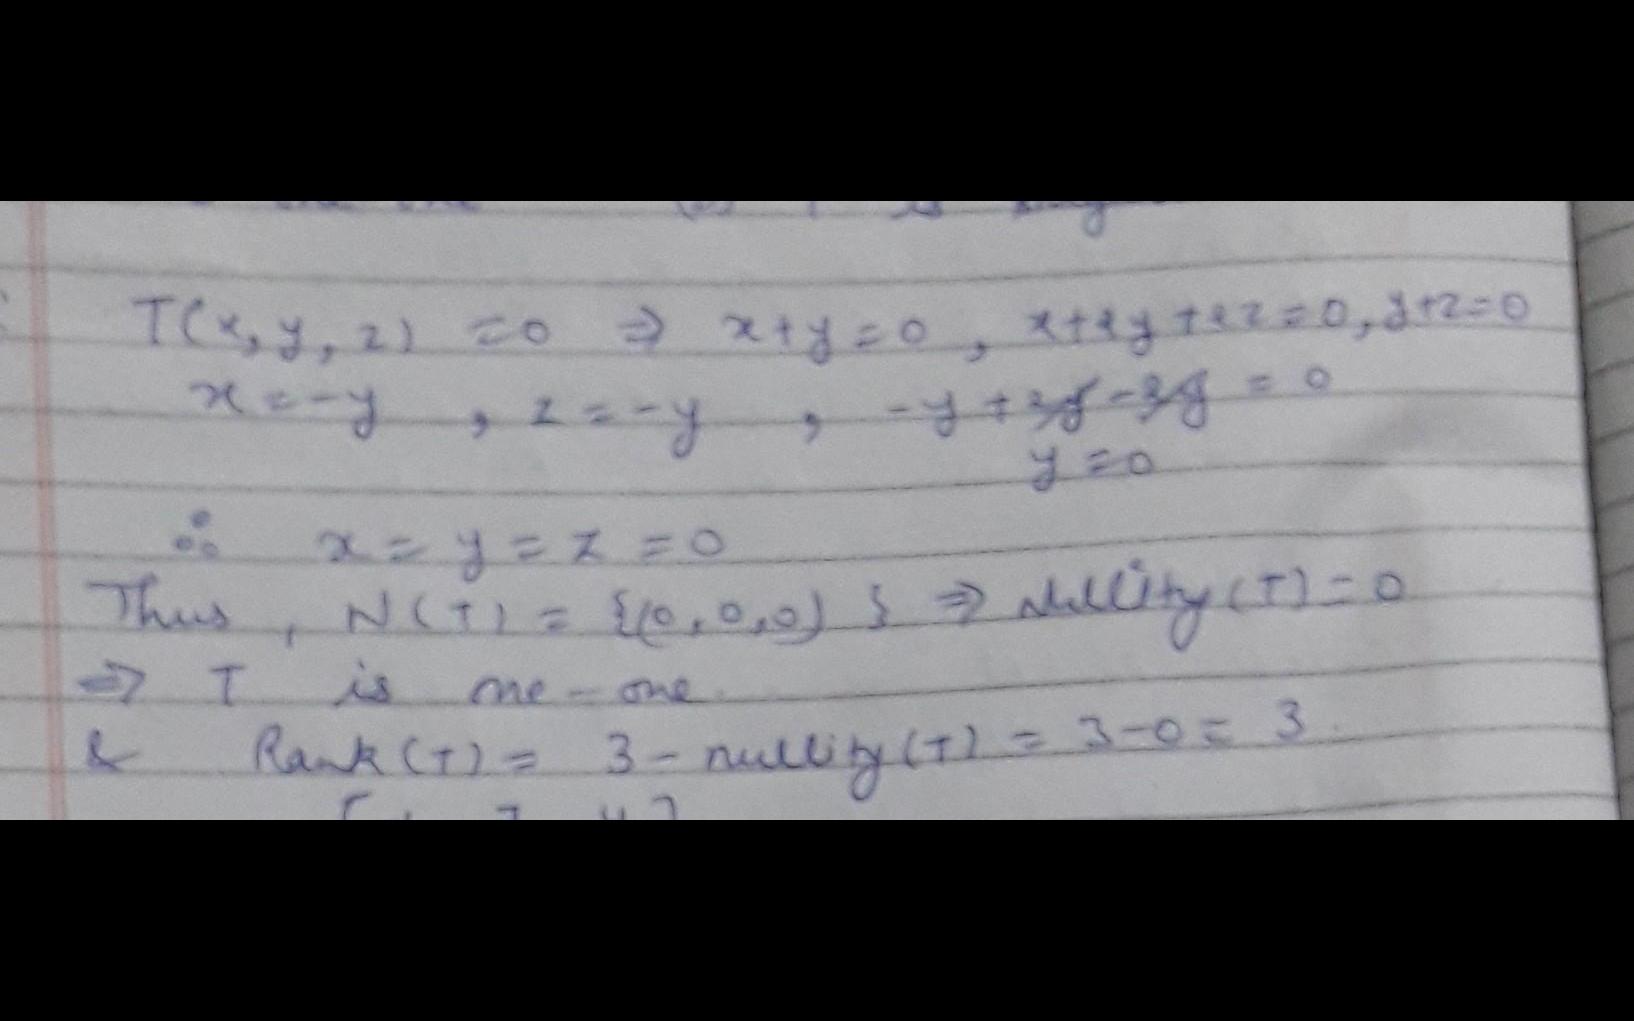 T(x, y, z) = 0 ⇒ x+y=0, x+2y+2z=0, y+z=0
x = -y , z = -y , -y + 2y - 2y = 0
y = 0
∴ x = y = z = 0
Thus, N(T) = {(0,0,0)} ⇒ Nullity(T) = 0
⇒ T is one-one
& Rank(T) = 3 - nullity(T) = 3-0 = 3.